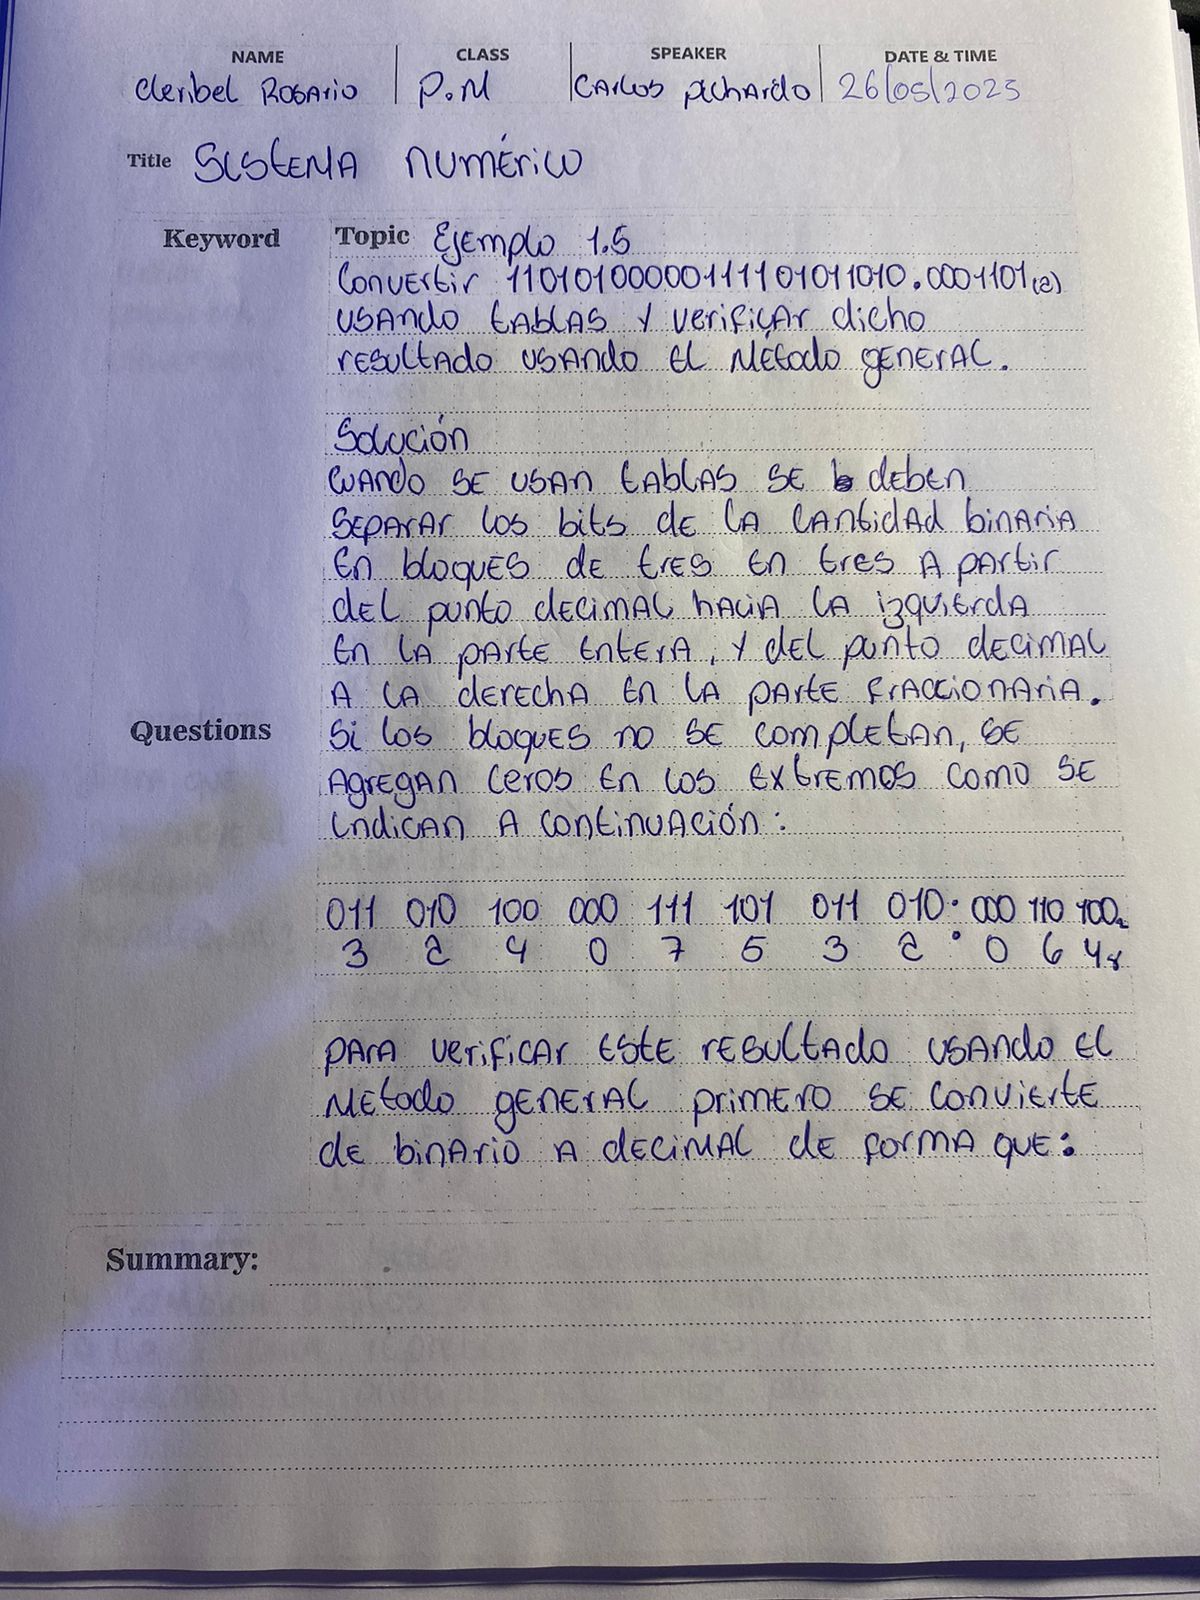 NAME CLASS SPEAKER DATE & TIME
Cleribel Rosario P.M Carlos Pichardo 26/05/2025
Title Sistema numérico
Keyword Topic Ejemplo 1.5
Convertir 110101000001111101011010.0001101(2)
usando tablas y verificar dicho
resultado usando el Método general.
Solución
Cuando se usan tablas se deben
separar los bits de la cantidad binaria
en bloques de tres en tres a partir
del punto decimal hacia la izquierda
en la parte entera, y del punto decimal
a la derecha en la parte fraccionaria.
Questions Si los bloques no se completan, se
agregan ceros en los extremos como se
indican a continuación:
011 010 100 000 111 101 011 010. 000 110 100₂
3 2 4 0 7 5 3 2 . 0 6 4₈
para verificar este resultado usando el
Metodo general primero se convierte
de binario a decimal de forma que:
Summary: